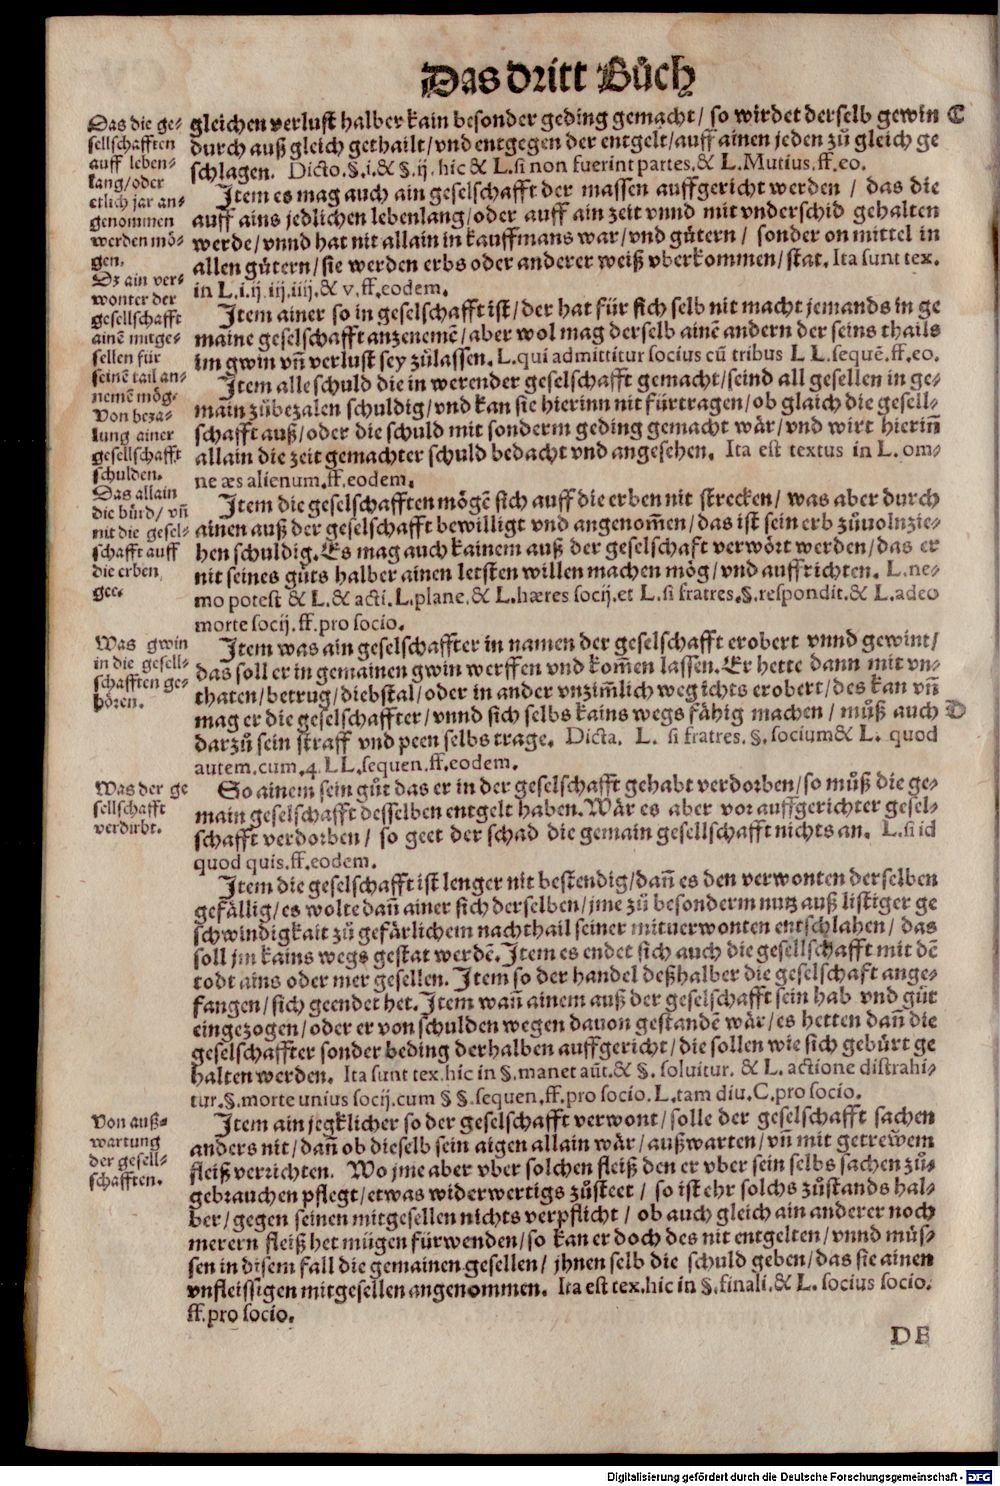 Das dritt Bůch
Das die ge⸗
sellschafften
auff leben⸗
lang/oder
etlich jar an⸗
genommen
werden mö⸗
gen.
Dz ain ver⸗
wonter der
gesellschafft
ainē mitge⸗
sellen für
seinē tail an⸗
nemē mög.
Von beza⸗
lung ainer
gesellschafft
schulden.
Das allain
die bürd/ vñ
nit die gesel⸗
schafft auff
die erben
gee.
Was gwin
in die gesell⸗
schafften ge⸗
hören.
Was der ge
sellschafft
verdirbt.
Von auß⸗
wartung
der gesell⸗
schafften.
gleichen verlust halber kain besonder geding gemacht/ so wirdet derselb gewin C
durch auß gleich gethailt/vnd entgegen der entgelt/auff ainen jeden zů gleich ge
schlagen. Dicto.§.i.& §.ij. hic & L.si non fuerint partes.& L.Mutius.ff.eo.
Item es mag auch ain geselschafft der massen auffgericht werden / das die
auff ains jedlichen lebenlang/oder auff ain zeit vnnd mit vnderschid gehalten
werde/vnnd hat nit allain in kauffmans war/vnd gůtern/ sonder on mittel in
allen gůtern/sie werden erbs oder anderer weiß vberkommen/stat. Ita sunt tex.
in L.i.ij.iij.iiij.& v.ff.eodem.
Item ainer so in geselschafft ist/der hat für sich selb nit macht jemands in ge
maine geselschafft anzenemē/aber wol mag derselb ainē andern der seins thails
im gwin vñ verlust sey zůlassen. L.qui admittitur socius cū tribus L L.sequē.ff.eo.
Item alle schuld die in werender geselschafft gemacht/seind all gesellen in ge⸗
main zůbezalen schuldig/vnd kan sie hierinn nit fürtragen/ob gleich die gesell⸗
schafft auß/oder die schuld mit sonderm geding gemacht wär/vnd wirt hieriñ
allain die zeit gemachter schuld bedacht vnd angesehen. Ita est textus in L.om⸗
ne æs alienum.ff.eodem.
Item die geselschafften mögē sich auff die erben nit strecken/ was aber durch
ainen auß der geselschafft bewilligt vnd angenom̃en/das ist sein erb zůuolnzie⸗
hen schuldig. Es mag auch kainem auß der geselschaft verwört werden/das er
nit seines gůts halber ainen letsten willen machen mög/vnd auffrichten. L.ne⸗
mo potest & L.& acti.L.plane.& L.hæres socij.et L.si fratres.§.respondit.& L.adeo
morte socij.ff.pro socio.
Item was ain geselschaffter in namen der geselschafft erobert vnnd gewint/
das soll er in gemainen gwin werffen vnd kom̃en lassen. Er hette dann mit vn⸗
thaten/betrug/diebstal/oder in ander vnzim̃lich weg ichts erobert/des kan vñ
mag er die geselschaffter/vnnd sich selbs kains wegs fähig machen/ můß auch D
darzů sein straff vnd peen selbs trage. Dicta. L. si fratres. §. socium& L. quod
autem.cum.4.LL.sequen.ff.eodem.
So ainem sein gůt das er in der geselschafft gehabt verdorben/so můß die ge⸗
main geselschafft desselben entgelt haben. Wär es aber vor auffgerichter gesel⸗
schafft verdorben/ so geet der schad die gemain gesellschafft nichts an. L.si id
quod quis.ff.eodem.
Item die geselschafft ist lenger nit bestendig/dañ es den verwonten derselben
gefällig/es wolte dañ ainer sich derselben/jme zů besonderm nutz auß listiger ge
schwindigkait zů gefärlichem nachthail seiner mituerwonten entschlahen/ das
soll jm kains wegs gestat werdē. Item es endet sich auch die gesellschafft mit dē
todt ains oder mer gesellen. Item so der handel deßhalber die geselschaft ange⸗
fangen/sich geendet het. Item wañ ainem auß der geselschafft sein hab vnd gůt
eingezogen/oder er von schulden wegen dauon gestandē wär/es hetten dañ die
geselschaffter sonder beding derhalben auffgericht/die sollen wie sich gebürt ge
halten werden. Ita sunt tex.hic in §.manet aūt.& §. soluitur. & L. actione distrahi⸗
tur.§.morte unius socij.cum § §.sequen.ff.pro socio.L.tam diu.C.pro socio.
Item ain jegklicher so der geselschafft verwont/solle der geselschafft sachen
anders nit/dañ ob dieselb sein aigen allain wär/außwarten/vñ mit getrewem
fleiß verrichten. Wo jme aber vber solchen fleiß den er vber sein selbs sachen zů⸗
gebrauchen pflegt/etwas widerwertigs zůsteet/ so ist ehr solchs zůstands hal⸗
ber/gegen seinen mitgesellen nichts verpflicht/ ob auch gleich ain anderer noch
merern fleiß het mügen fürwenden/so kan er doch des nit entgelten/vnnd müs⸗
sen in disem fall die gemainen gesellen/ jhnen selb die schuld geben/das sie ainen
vnfleissigen mitgesellen angenommen. Ita est tex.hic in §.finali.& L. socius socio.
ff.pro socio.
DE
Digitalisierung gefördert durch die Deutsche Forschungsgemeinschaft - DFG